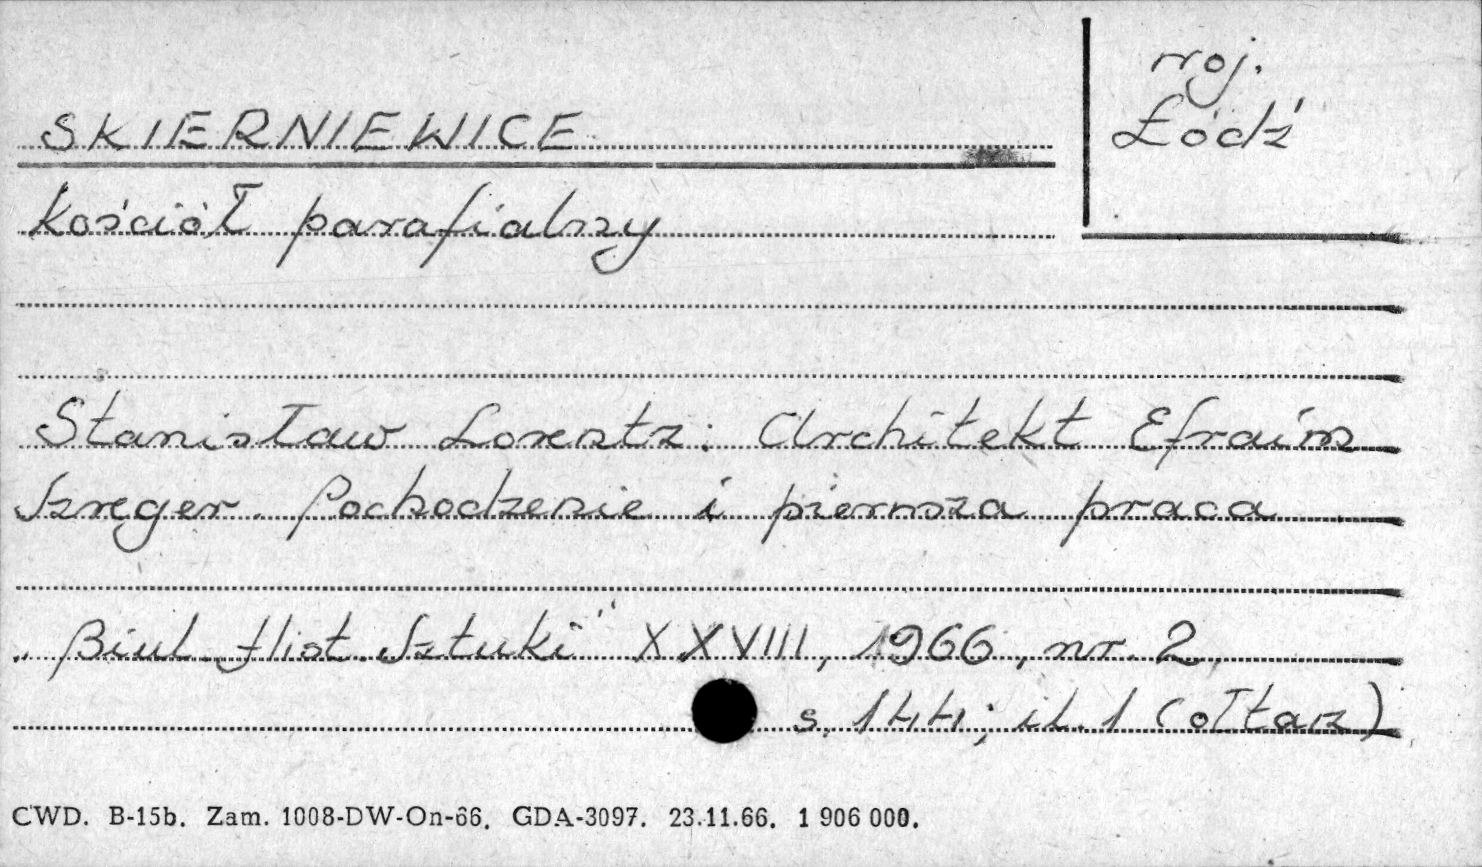 SKIERNIEWICE
woj.
Łódź
Kościół parafialny
Stanisław Lorentz: Architekt Efraim
Szreger. Pochodzenie i pierwsza praca
„Biul. Hist. Sztuki" XXVIII, 1966, nr. 2,
s. 144; il. 1 (ołtarz)
CWD. B-15b. Zam. 1008-DW-On-66. GDA-3097. 23.11.66. 1 906 000.